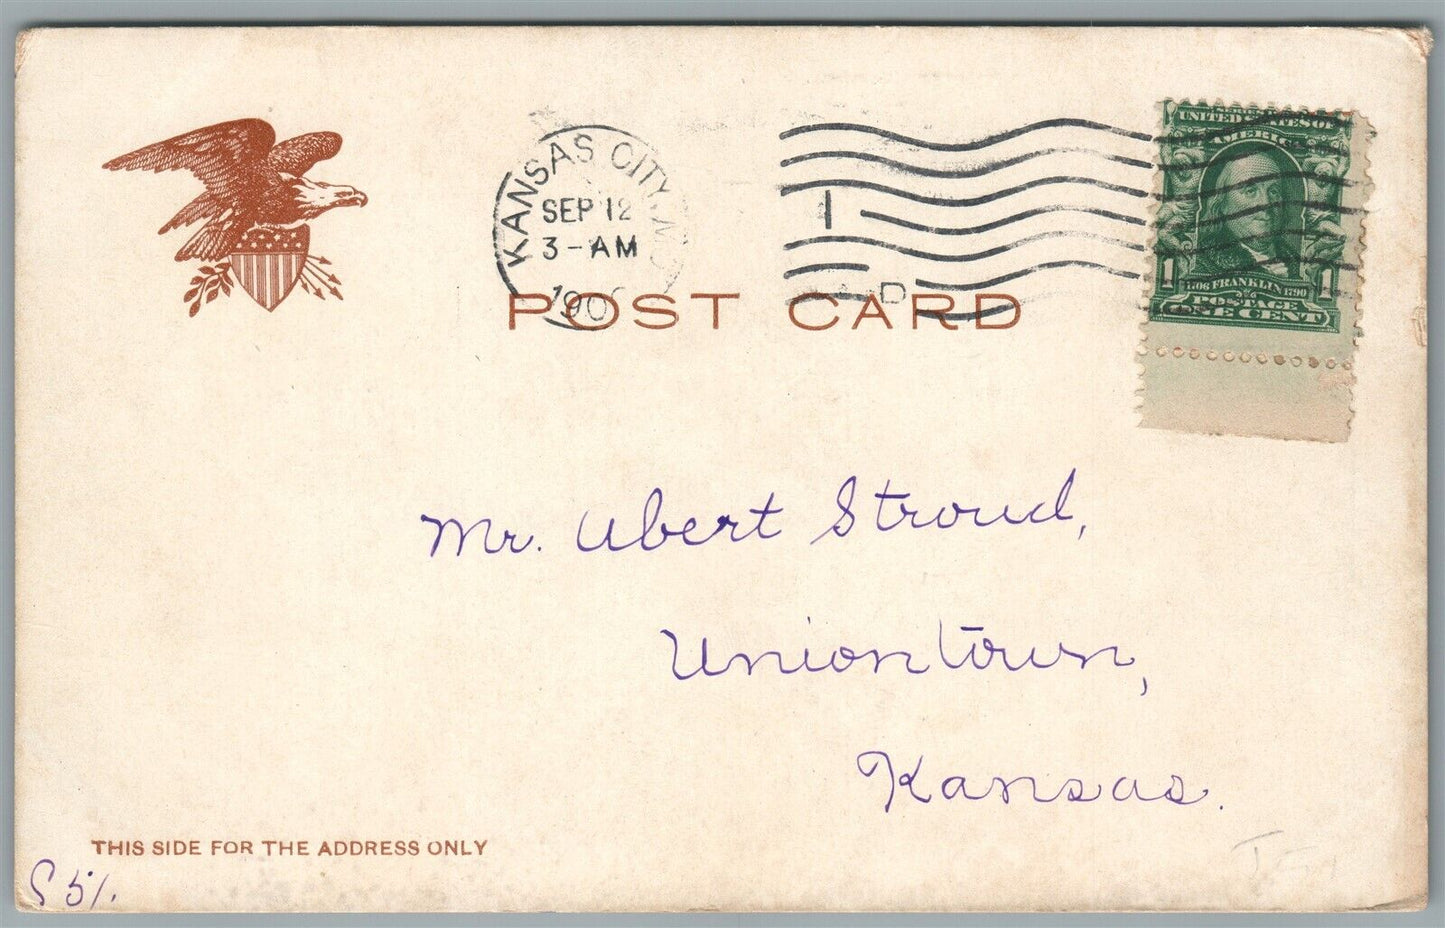 KANSAS CITY, MO
SEP 12
3-AM
190
1
D
UNITED STATES OF
AMERICA
1 1706 FRANKLIN 1790 1
POSTAGE
ONE CENT
POST CARD
Mr. Albert Stroud,
Uniontown,
Kansas.
THIS SIDE FOR THE ADDRESS ONLY
S 51.